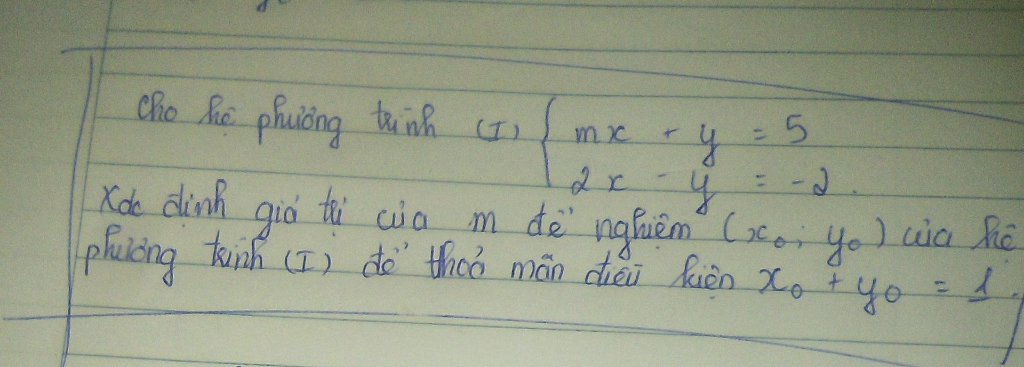 Cho hệ phương trình (I) { mx + y = 5
2x - y = -2.
Xác định giá trị của m để nghiệm (x₀; y₀) của hệ
phương trình (I) để thoả mãn điều kiện x₀ + y₀ = 1.